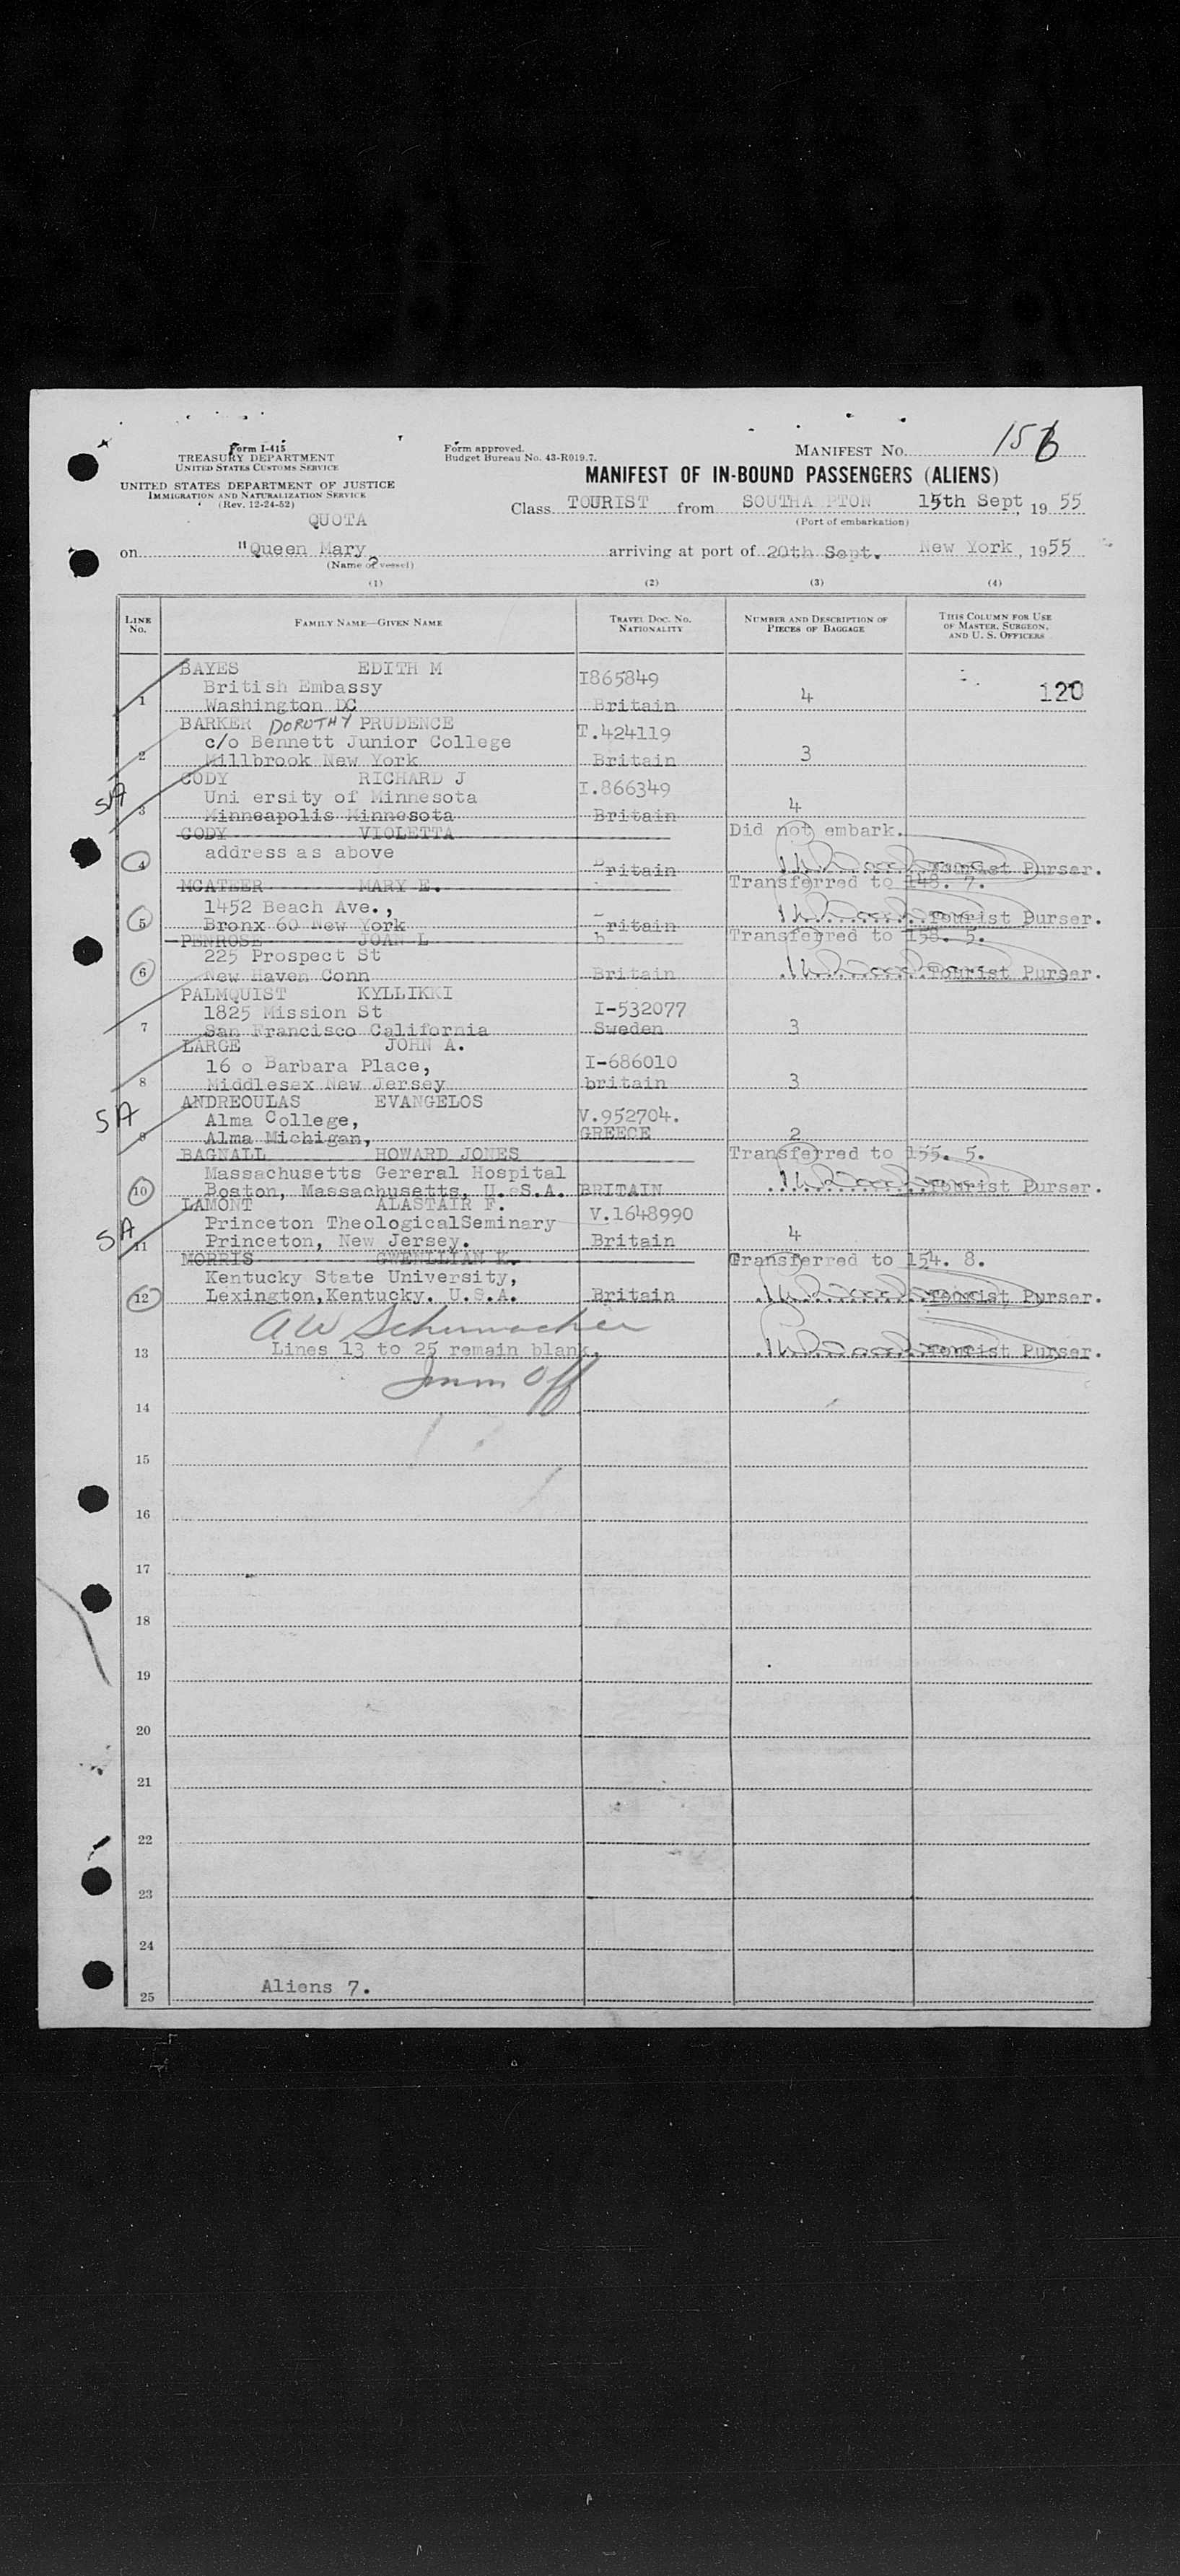 Form I-415
TREASURY DEPARTMENT
UNITED STATES CUSTOMS SERVICE
UNITED STATES DEPARTMENT OF JUSTICE
IMMIGRATION AND NATURALIZATION SERVICE
(Rev. 12-24-52)
QUOTA
Form approved.
Budget Bureau No. 43-R019.7.
MANIFEST NO. 156
MANIFEST OF IN-BOUND PASSENGERS (ALIENS)
Class TOURIST from SOUTHA PTON 15th Sept, 19 55
(Port of embarkation)
on "Queen Mary arriving at port of 20th Sept. New York, 1955
(Name of vessel)
(1) (2) (3) (4)
LINE NO. FAMILY NAME—GIVEN NAME TRAVEL DOC. NO. NATIONALITY NUMBER AND DESCRIPTION OF PIECES OF BAGGAGE THIS COLUMN FOR USE OF MASTER, SURGEON, AND U. S. OFFICERS
BAYES EDITH M
British Embassy I865849
1 Washington DC Britain 4 120
BARKER DOROTHY PRUDENCE
c/o Bennett Junior College T.424119
2 Millbrook New York Britain 3
CODY RICHARD J
SA Uni ersity of Minnesota I.866349
3 Minneapolis Minnesota Britain 4
CODY VIOLETTA Did not embark.
address as above
4 ritain Tourist Purser.
MCATEER MARY E. Transferred to 148. 7.
1452 Beach Ave.,
5 Bronx 60 New York ritain Tourist Purser.
PENROSE JOAN L Transferred to 158. 5.
225 Prospect St
6 New Haven Conn Britain Tourist Purser.
PALMQUIST KYLLIKKI
1825 Mission St I-532077
7 San Francisco California Sweden 3
LARGE JOHN A.
16 o Barbara Place, I-686010
8 Middlesex New Jersey britain 3
ANDREOULAS EVANGELOS
SA Alma College, V.952704.
9 Alma Michigan, GREECE 2
BAGNALL HOWARD JONES Transferred to 155. 5.
Massachusetts Gereral Hospital
10 Boston, Massachusetts, U.S.A. BRITAIN Tourist Purser.
LAMONT ALASTAIR F.
SA Princeton TheologicalSeminary V.1648990
11 Princeton, New Jersey. Britain 4
MORRIS GWENLLIAN K. Transferred to 154. 8.
Kentucky State University,
12 Lexington,Kentucky. U.S.A. Britain Tourist Purser.
AW Schumacher
13 Lines 13 to 25 remain blank. Tourist Purser.
Imm Off
14
15
16
17
18
19
20
21
22
23
24
Aliens 7.
25